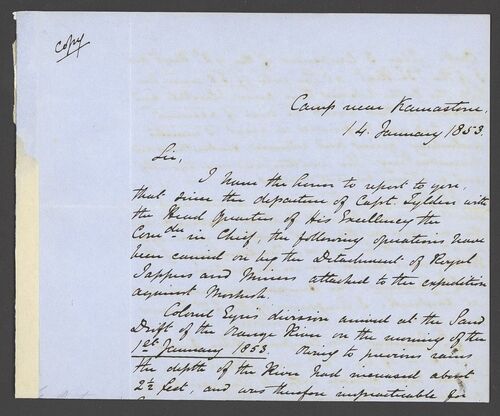 copy
Camp near Kamastone,
14. January 1853.
Sir,
I have the honor to report to you,
that since the departure of Capt. Tylden with
the Head Quarters of His Excellency the
Comdr in Chief, the following operations have
been carried on by the Detachment of Royal
Sappers and Miners attached to the expedition
against Moshesh.
Colonel Eyre's division arrived at the Sand
Drift of the Orange River on the morning of the
1st January 1853. Owing to previous rains
the depth of the River had increased about
2½ feet, and was therefore impracticable for